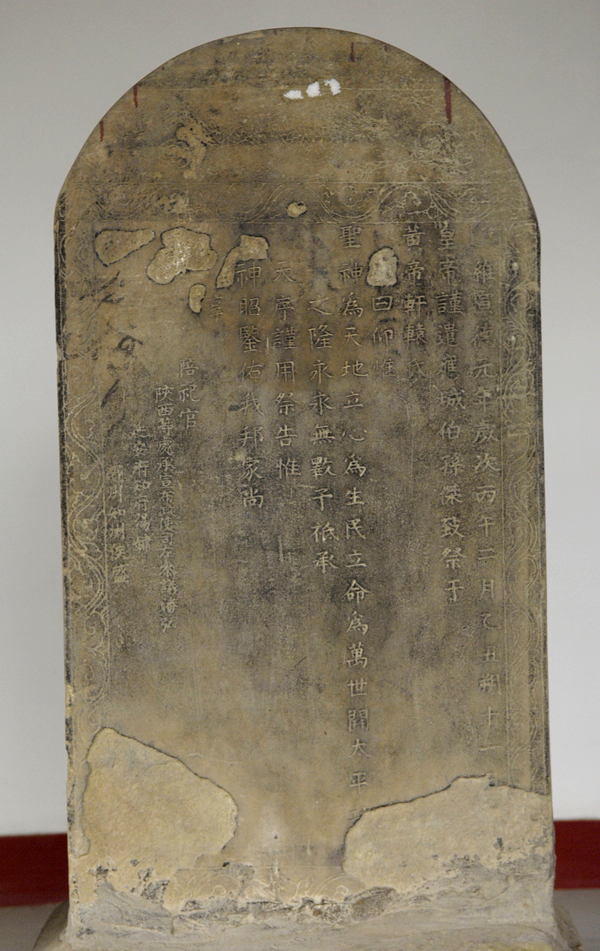 維宣德元年歲次丙午二月乙丑朔十一
皇帝謹遣應城伯孫傑致祭于
黃帝軒轅氏
曰仰惟
聖神為天地立心為生民立命為萬世開太平
之隆永永無斁予祗承
天序謹用祭告惟
神昭鑒佑我邦家尚
享
陪祀官
陝西等處承宣布政使司左參議
延安府知府
鄜州知州